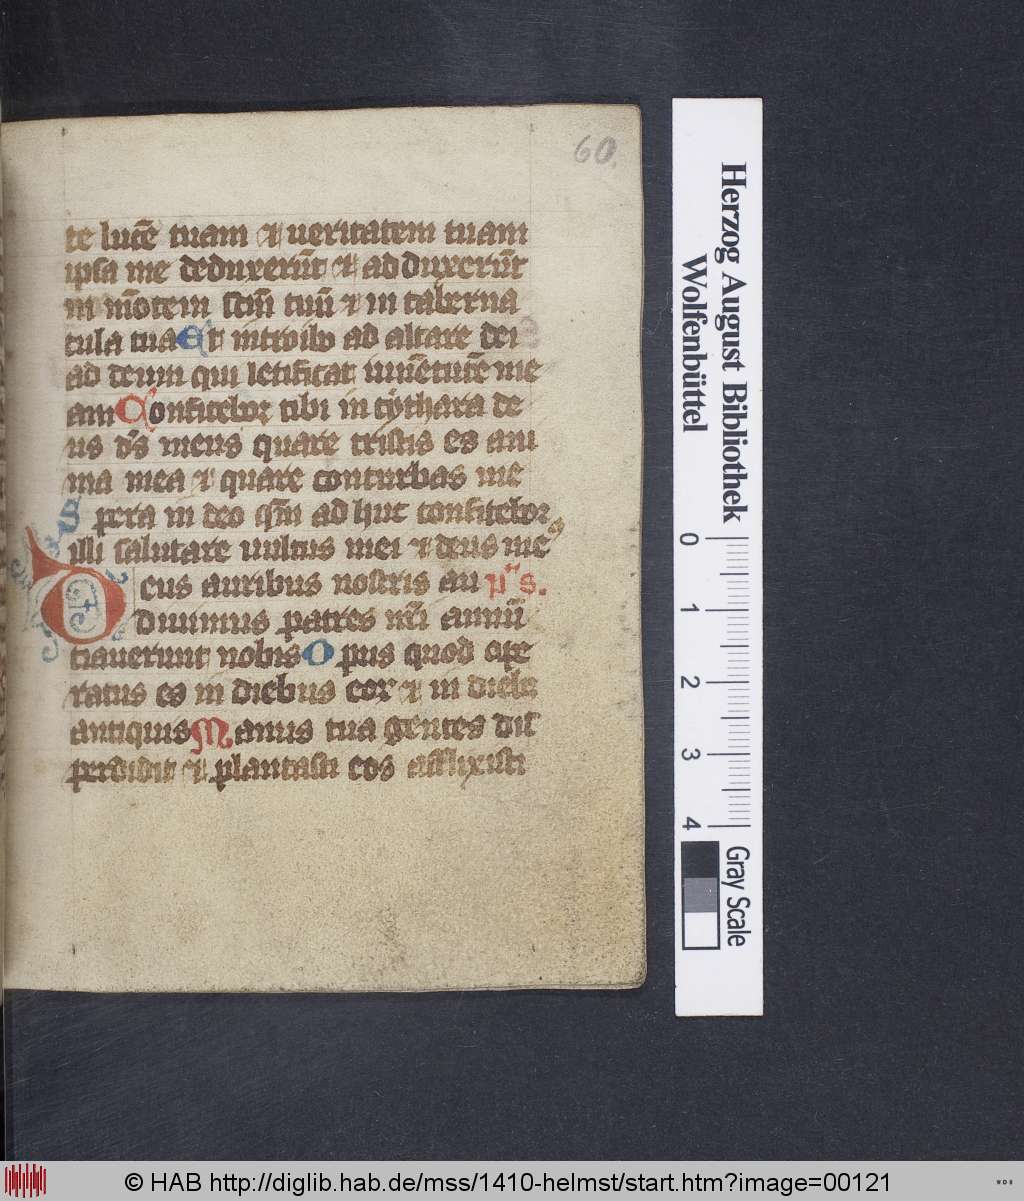 60.
te lucē tuam et ueritatem tuam
ipsa me deduxerūt et ad duxerūt
in mōtem scm̄ tuū et in taberna
cula tua Et introibo ad altare dei
ad deum qui letificat iuuētutē me
am Confitebor tibi in cythara de
us ds̄ meus quare tristis es ani
ma mea et quare conturbas me
Spera in deo qm̄ ad huc confitebor
illi salutare uultus mei et deus meꝰ
Deus auribus nostris au pˢ s.
diuimus patres nr̄i annūū
tiauerunt nobis Opus quod ope
ratus es in diebus eor et in dieb;
antiquis Manus tua gentes dis̄
perdidit et plantasti eos afflixisti
Herzog August Bibliothek
Wolfenbüttel
0 1 2 3 4
Gray Scale
© HAB http://diglib.hab.de/mss/1410-helmst/start.htm?image=00121
WDB